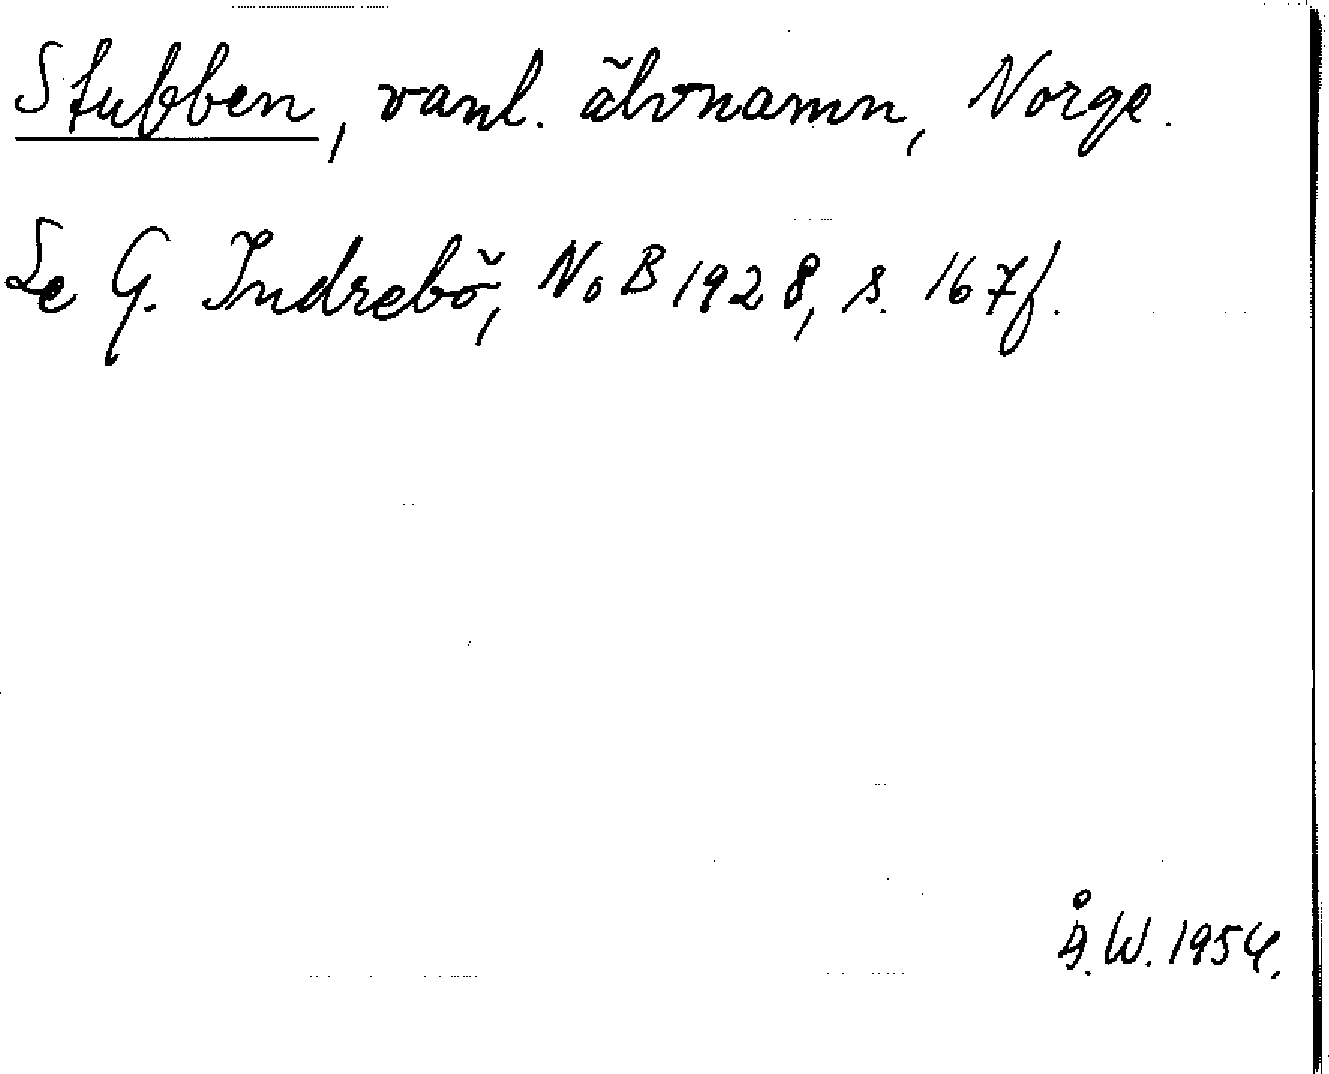 Stubben, vanl. älvnamn, Norge.
Se G. Indrebö, NoB 1928, s. 167f.
Å.W. 1954.